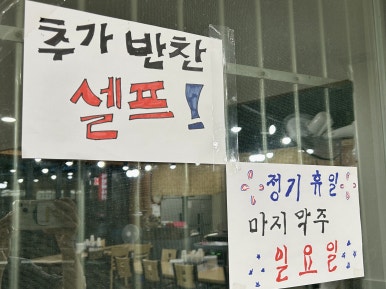 추가 반찬
셀프!
정기 휴일
마지막주
일요일